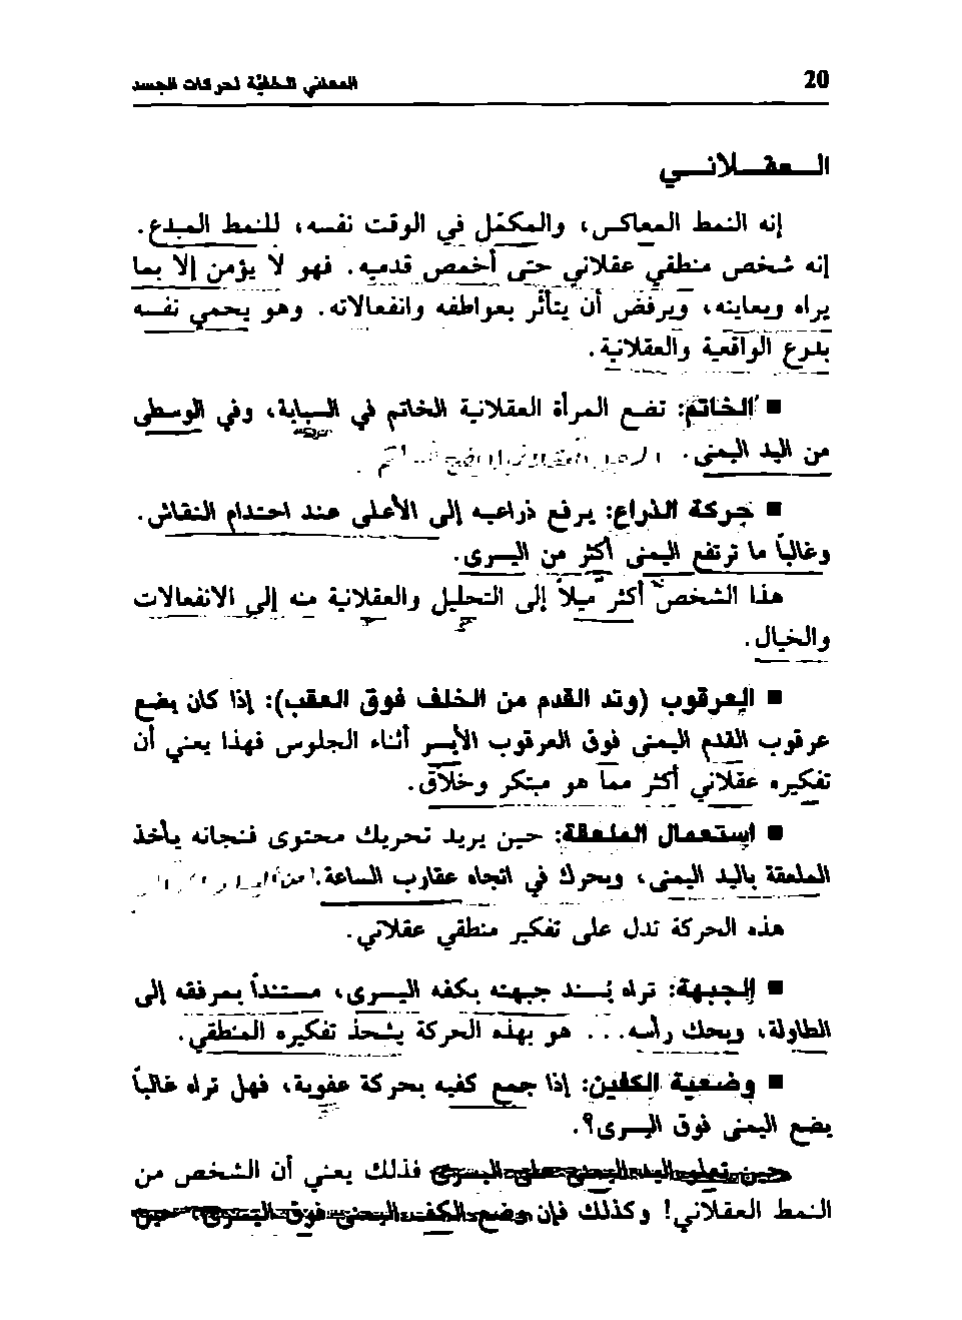 المعاني الخفيّة لحركات الجسد 20
العقلاني
إنه النمط المعاكس، والمكمّل في الوقت نفسه، للنمط المبدع.
إنه شخص منطقي عقلاني حتى أخمص قدميه. فهو لا يؤمن إلا بما
يراه ويعاينه، ويرفض أن يتأثّر بعواطفه وانفعالاته. وهو يحمي نفسه
بدرع الواقعية والعقلانية.
■ الخاتم: تضع المرأة العقلانية الخاتم في السبابة، وفي الوسطى
من اليد اليمنى.
■ حركة الذراع: يرفع ذراعيه إلى الأعلى عند احتدام النقاش.
وغالباً ما ترتفع اليمنى أكثر من اليسرى.
هذا الشخص أكثر ميلاً إلى التحليل والعقلانية منه إلى الانفعالات
والخيال.
■ العرقوب (وتد القدم من الخلف فوق العقب): إذا كان يضع
عرقوب القدم اليمنى فوق العرقوب الأيسر أثناء الجلوس فهذا يعني أن
تفكيره عقلاني أكثر مما هو مبتكر وخلاّق.
■ استعمال الملعقة: حين يريد تحريك محتوى فنجانه يأخذ
الملعقة باليد اليمنى، ويحرك في اتجاه عقارب الساعة.
هذه الحركة تدل على تفكير منطقي عقلاني.
■ الجبهة: تراه يُسند جبهته بكفه اليسرى، مستنداً بمرفقه إلى
الطاولة، ويحك رأسه... هو بهذه الحركة يشحذ تفكيره المنطقي.
■ وضعية الكفين: إذا جمع كفيه بحركة عفوية، فهل تراه غالباً
يضع اليمنى فوق اليسرى؟.
حين تعلو اليد اليمنى على اليسرى فذلك يعني أن الشخص من
النمط العقلاني! وكذلك فإن وضع الكف اليمنى فوق اليسرى، حين